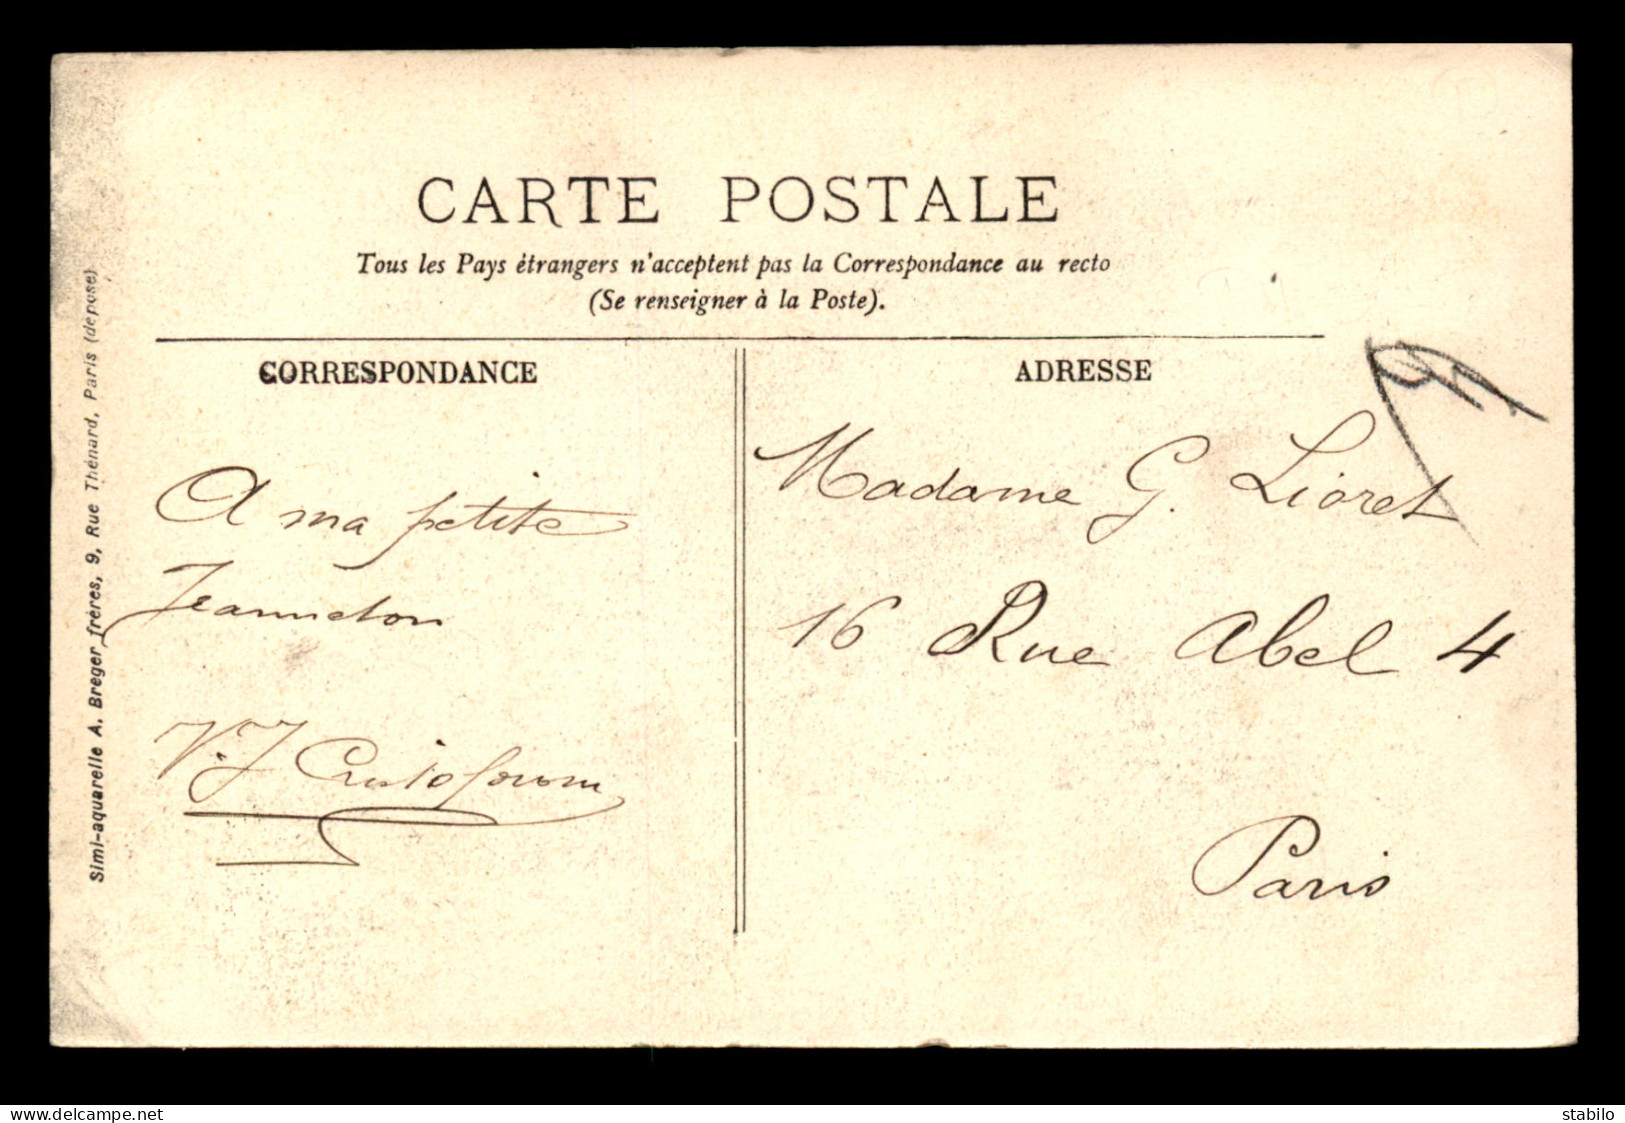 CARTE POSTALE
Tous les Pays étrangers n'acceptent pas la Correspondance au recto
(Se renseigner à la Poste).
CORRESPONDANCE
A ma petite
Jeanneton
V. J
ADRESSE
Madame G. Lioret
16 Rue Abel 4
Paris
Simi-aquarelle A. Breger frères, 9, Rue Thénard, Paris (déposé)
www.delcampe.net
stabilo